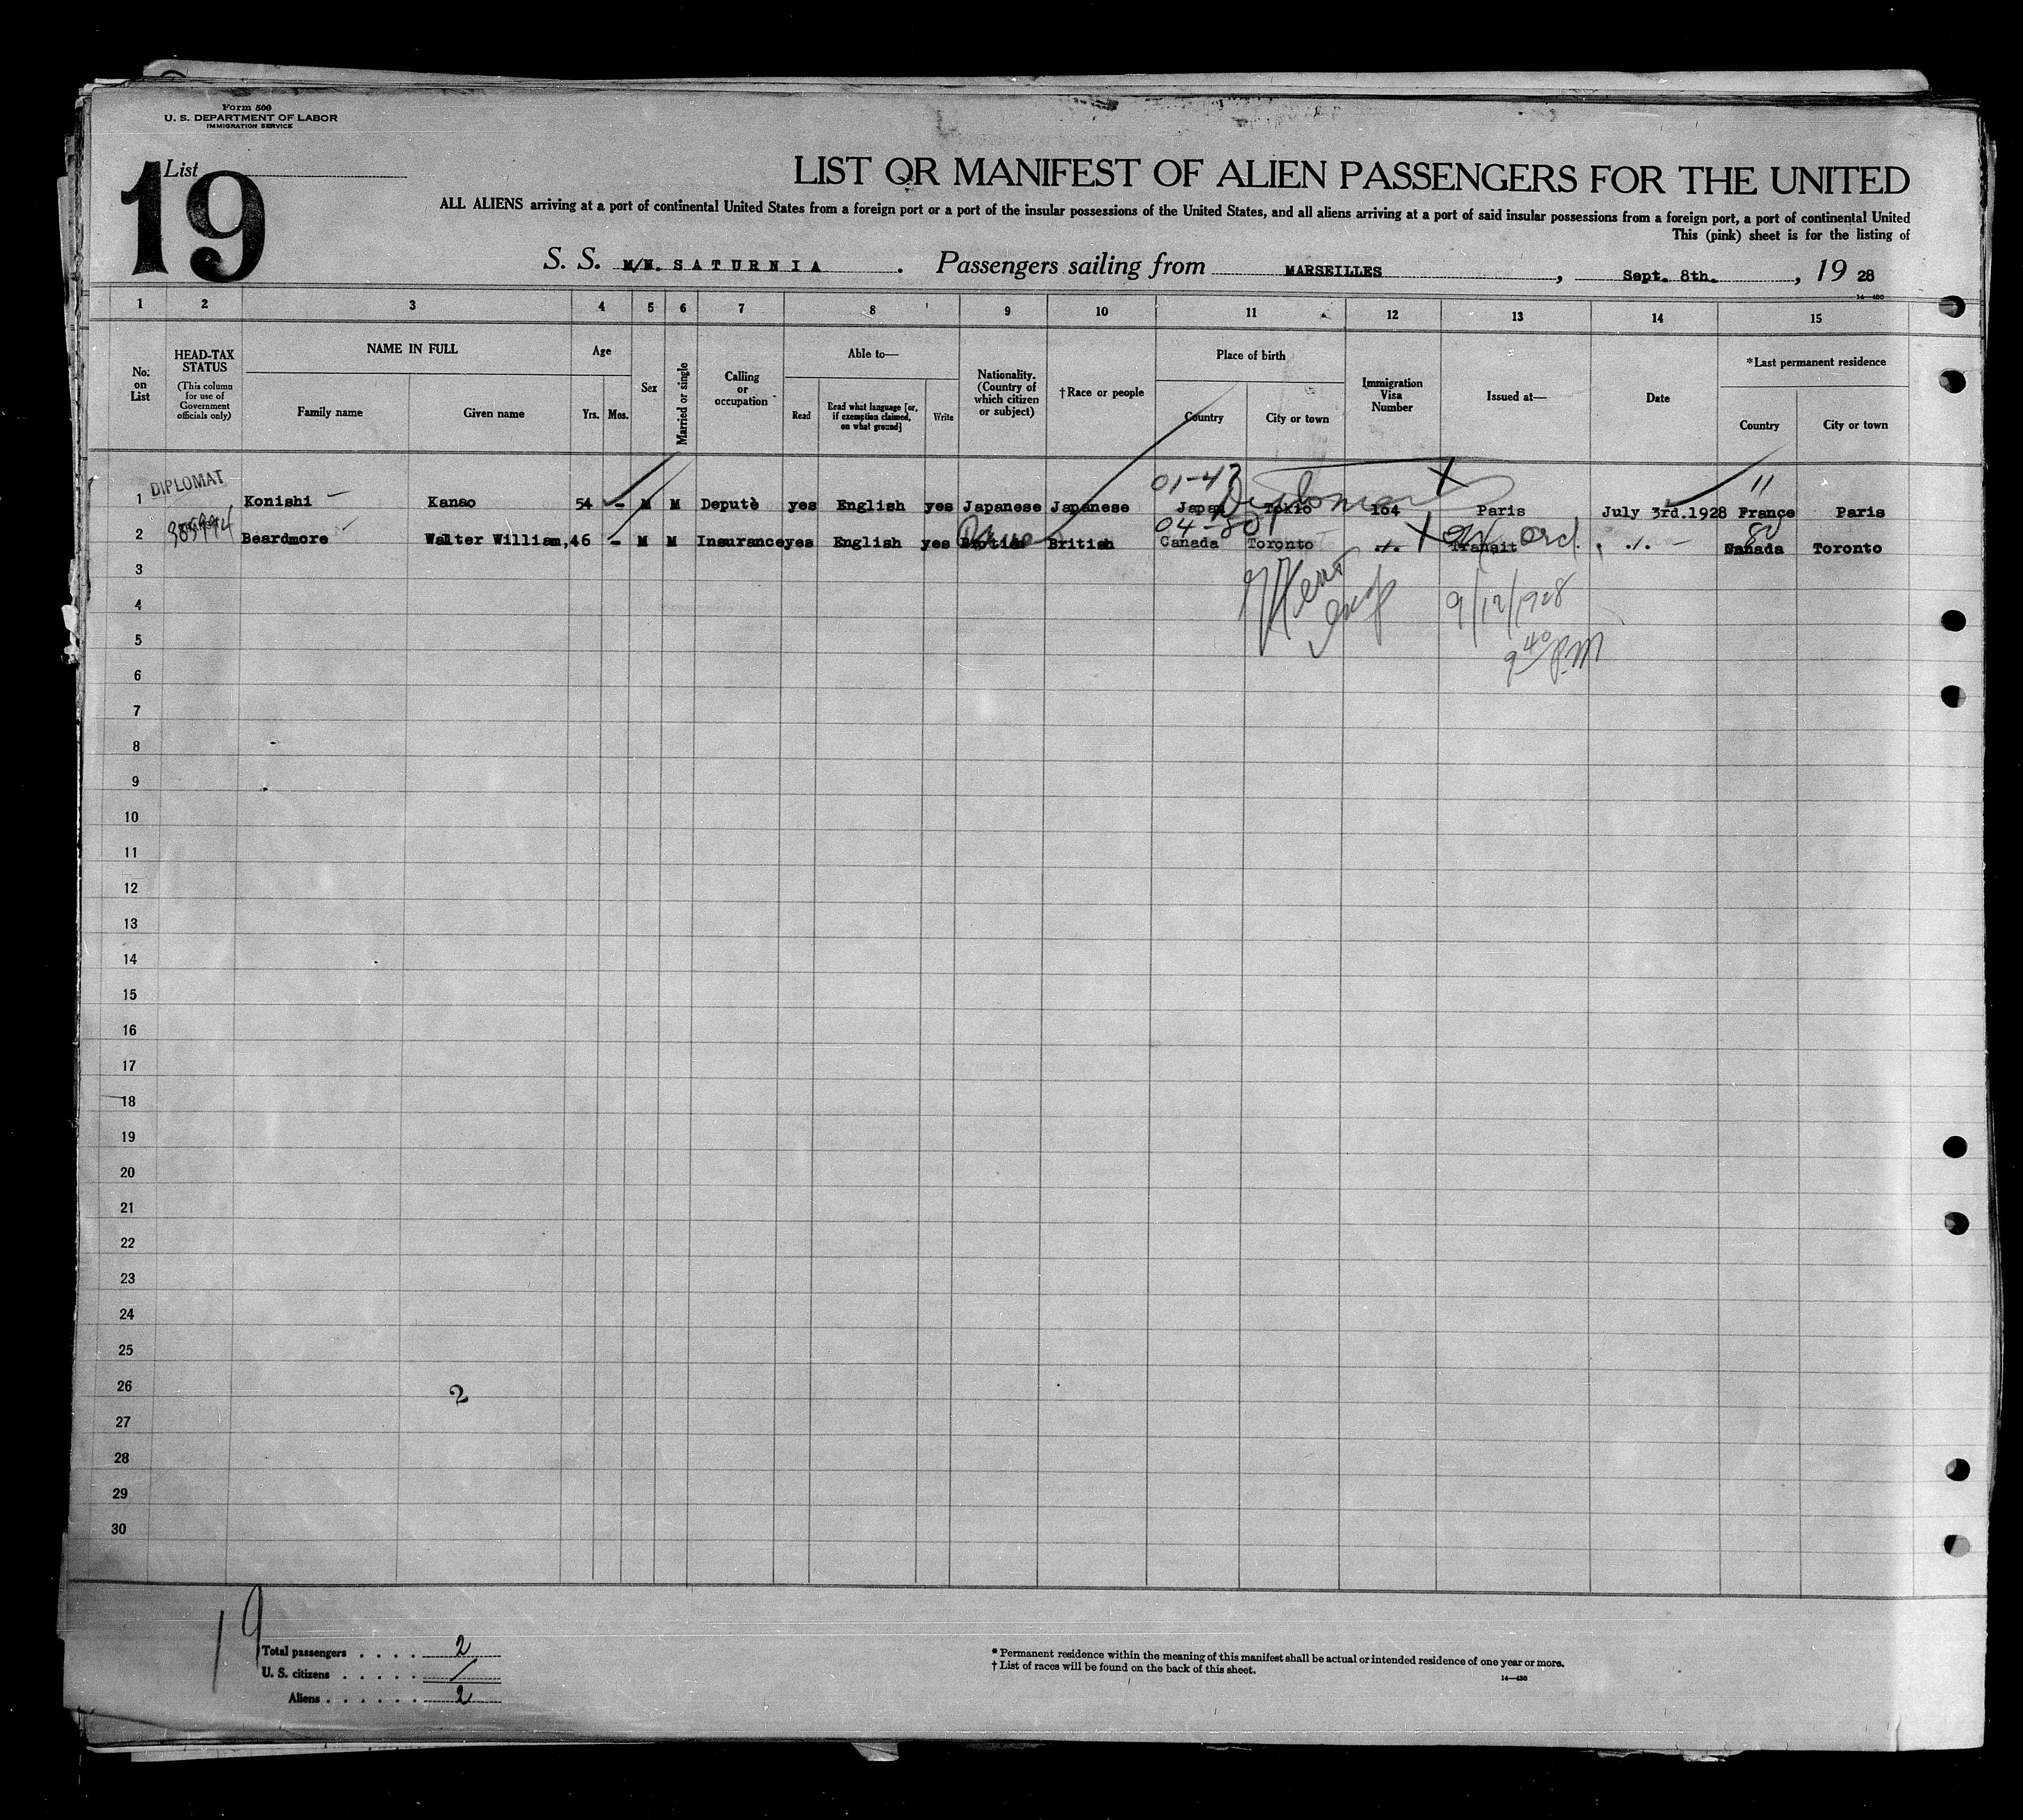 Form 500
U. S. DEPARTMENT OF LABOR
IMMIGRATION SERVICE
List
19
LIST OR MANIFEST OF ALIEN PASSENGERS FOR THE UNITED
ALL ALIENS arriving at a port of continental United States from a foreign port or a port of the insular possessions of the United States, and all aliens arriving at a port of said insular possessions from a foreign port, a port of continental United
This (pink) sheet is for the listing of
S. S. M/N. SATURNIA. Passengers sailing from MARSEILLES, Sept. 8th., 1928
14—430
1 2 3 4 5 6 7 8 9 10 11 12 13 14 15
No. on List
HEAD-TAX STATUS
(This column for use of Government officials only)
NAME IN FULL
Family name
Given name
Age
Yrs. Mos.
Sex
Married or single
Calling or occupation
Able to—
Read
Read what language [or, if exemption claimed, on what ground]
Write
Nationality. (Country of which citizen or subject)
†Race or people
Place of birth
Country
City or town
Immigration Visa Number
Issued at—
Date
*Last permanent residence
Country
City or town
01-47 11
1 DIPLOMAT Konishi — Kanao 54 - M M Deputè yes English yes Japanese Japanese Japan Tokio Diplomat 164 Paris July 3rd.1928 France Paris
04-80 80
2 Beardmore — Walter William, 46 - M M Insurance yes English yes British Canada Toronto ./. Transit ./. Canada Toronto
3
9/12/1928
4
5
9 40 P.M
6
7
8
9
10
11
12
13
14
15
16
17
18
19
20
21
22
23
24
25
26 2
27
28
29
30
19
Total passengers . . . . 2
U. S. citizens . . . . . /
Aliens . . . . . . 2
* Permanent residence within the meaning of this manifest shall be actual or intended residence of one year or more.
† List of races will be found on the back of this sheet.
14—430